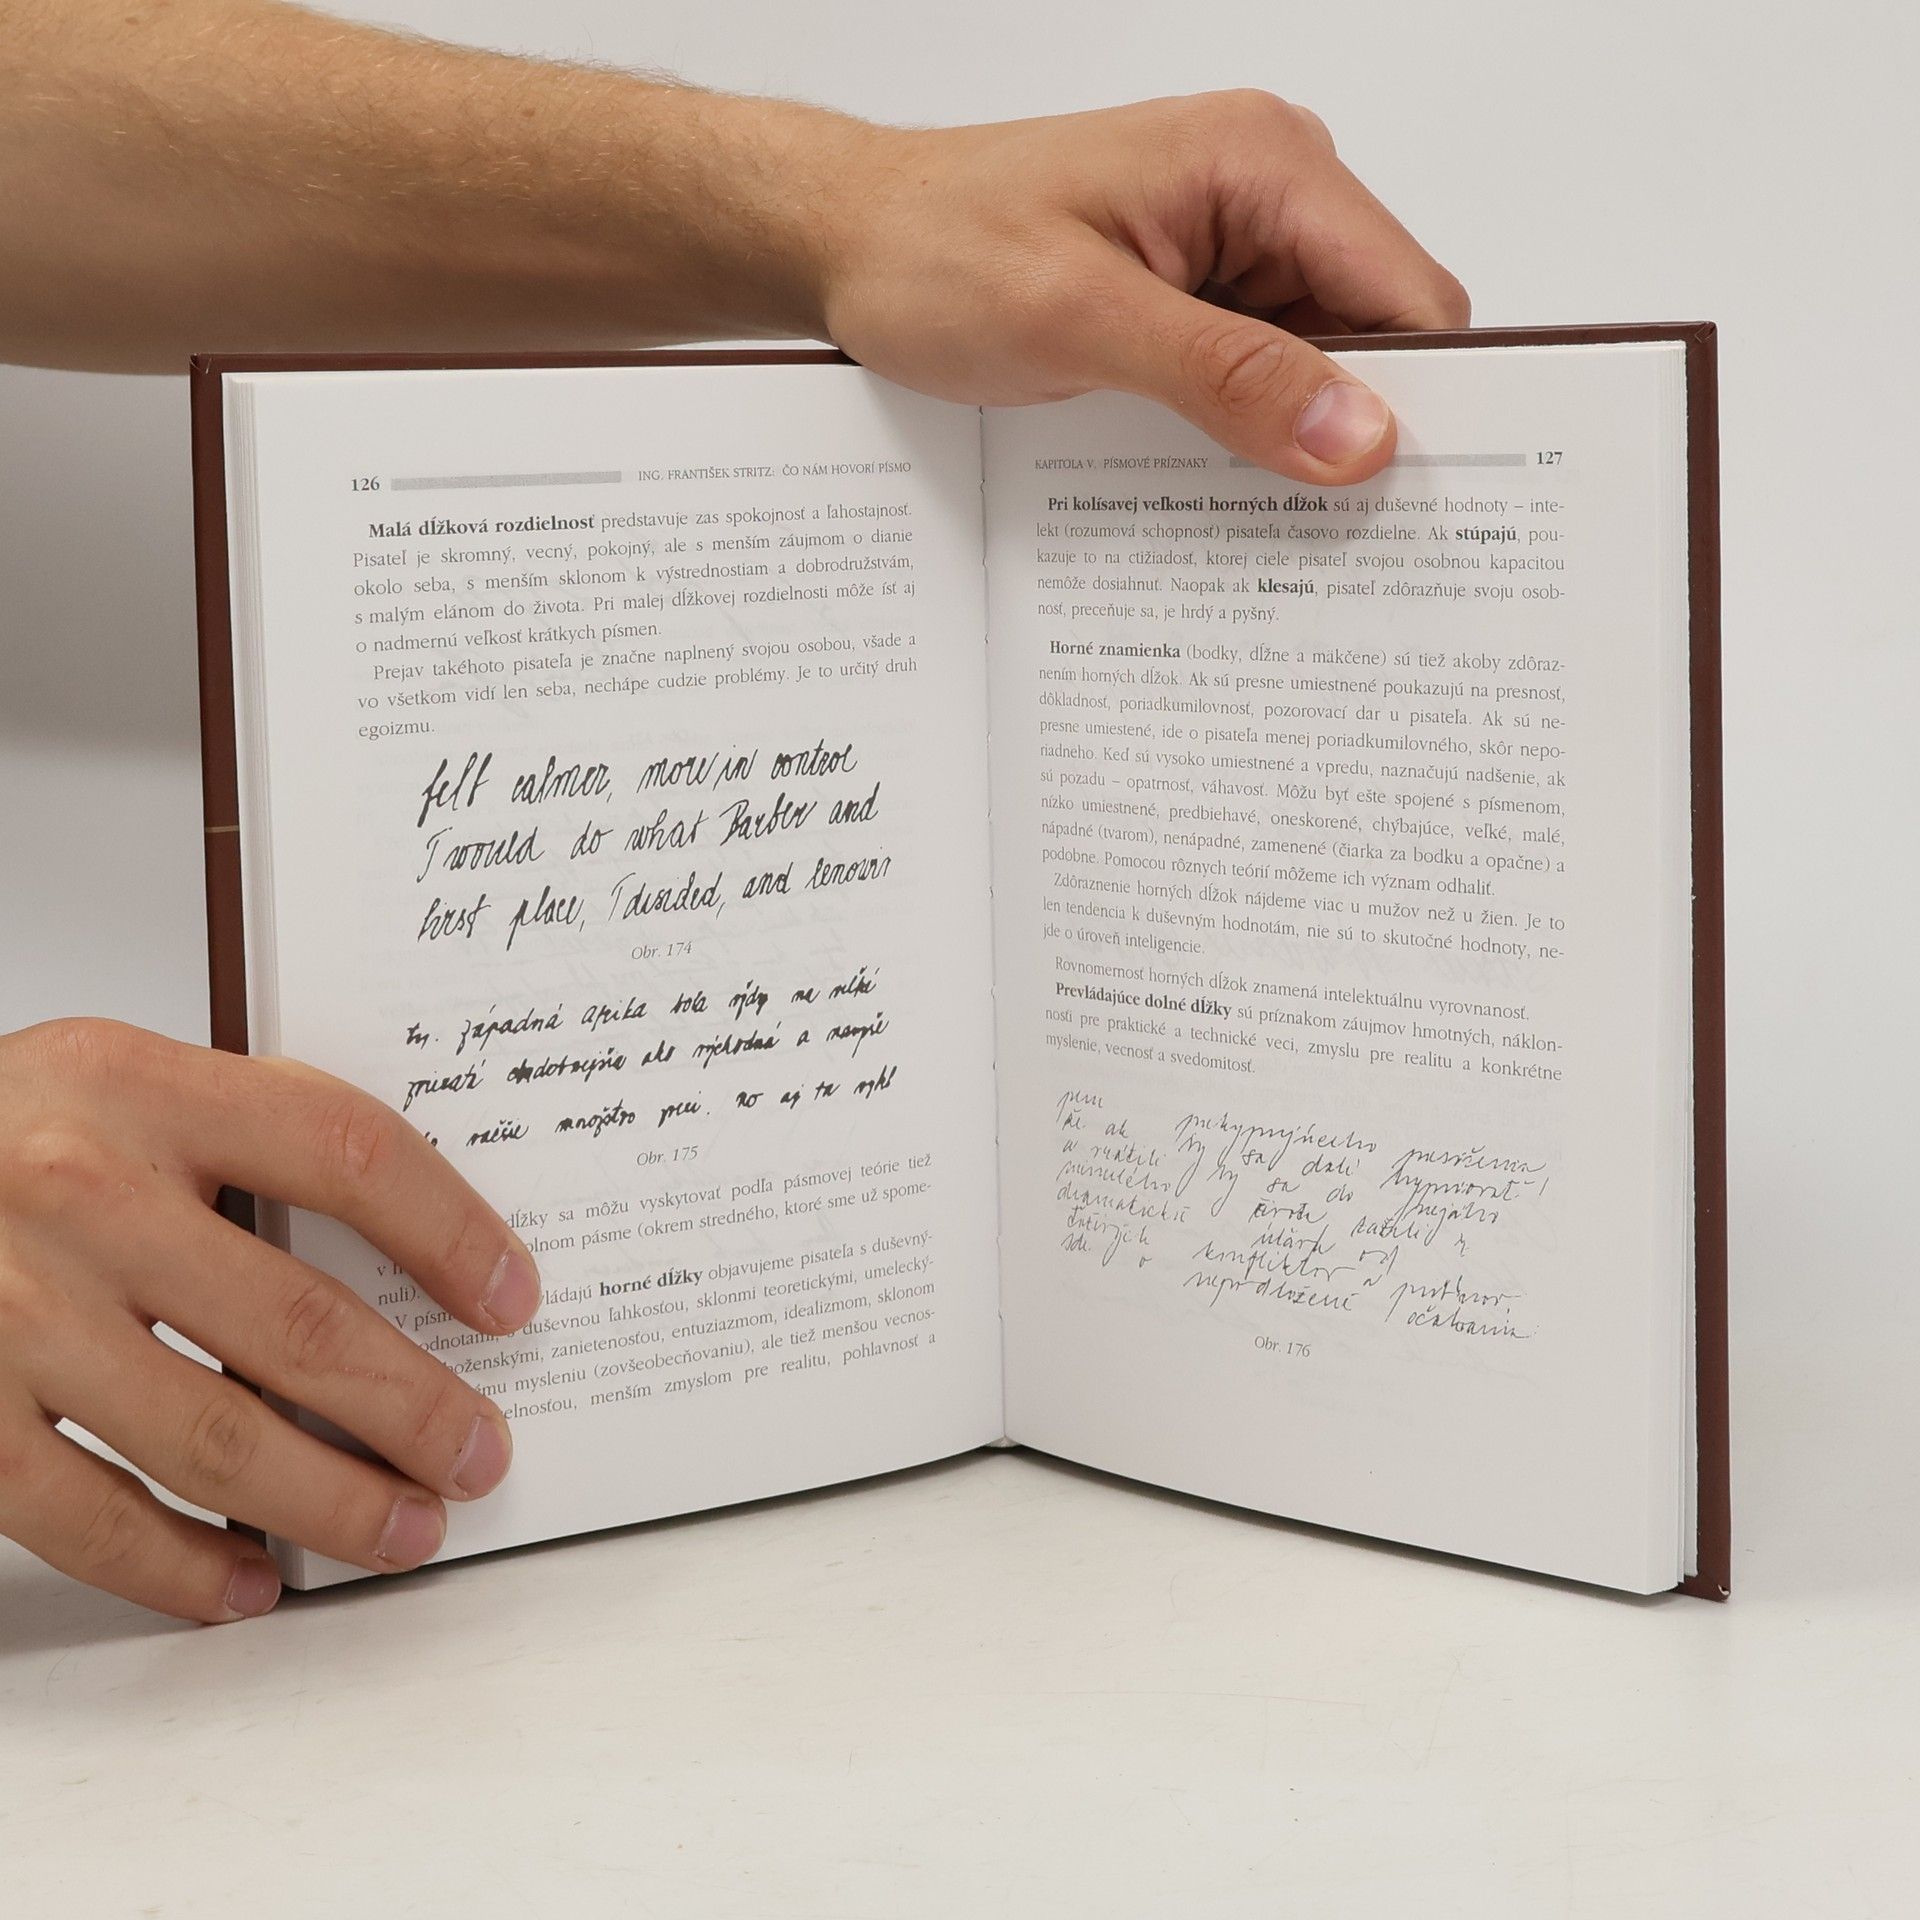 126 ING. FRANTIŠEK STRITZ: ČO NÁM HOVORÍ PÍSMO
Malá dĺžková rozdielnosť predstavuje zas spokojnosť a ľahostajnosť.
Pisateľ je skromný, vecný, pokojný, ale s menším záujmom o dianie
okolo seba, s menším sklonom k výstrednostiam a dobrodružstvám,
s malým elánom do života. Pri malej dĺžkovej rozdielnosti môže ísť aj
o nadmernú veľkosť krátkych písmen.
Prejav takéhoto pisateľa je značne naplnený svojou osobou, všade a
vo všetkom vidí len seba, nechápe cudzie problémy. Je to určitý druh
egoizmu.
felt calmer, more in control
I would do what Barber and
first place, I desided, and
Obr. 174
západná Afrika bola vždy na
ako východná a
množstvo no aj ta
Obr. 175
dĺžky sa môžu vyskytovať podľa pásmovej teórie tiež
olnom pásme (okrem stredného, ktoré sme už spome-
nuli).
V písm ládajú horné dĺžky objavujeme pisateľa s duševný-
odnotami, s duševnou ľahkosťou, sklonmi teoretickými, umelecký-
boženskými, zanietenosťou, entuziazmom, idealizmom, sklonom
ému mysleniu (zovšeobecňovaniu), ale tiež menšou vecnos-
elnosťou, menším zmyslom pre realitu, pohlavnosť a
KAPITOLA V. PÍSMOVÉ PRÍZNAKY 127
Pri kolísavej veľkosti horných dĺžok sú aj duševné hodnoty – inte-
lekt (rozumová schopnosť) pisateľa časovo rozdielne. Ak stúpajú, pou-
kazuje to na ctižiadosť, ktorej ciele pisateľ svojou osobnou kapacitou
nemôže dosiahnuť. Naopak ak klesajú, pisateľ zdôrazňuje svoju osob-
nosť, preceňuje sa, je hrdý a pyšný.
Horné znamienka (bodky, dĺžne a mäkčene) sú tiež akoby zdôraz-
nením horných dĺžok. Ak sú presne umiestnené poukazujú na presnosť,
dôkladnosť, poriadkumilovnosť, pozorovací dar u pisateľa. Ak sú ne-
presne umiestené, ide o pisateľa menej poriadkumilovného, skôr nepo-
riadneho. Keď sú vysoko umiestnené a vpredu, naznačujú nadšenie, ak
sú pozadu – opatrnosť, váhavosť. Môžu byť ešte spojené s písmenom,
nízko umiestnené, predbiehavé, oneskorené, chýbajúce, veľké, malé,
nápadné (tvarom), nenápadné, zamenené (čiarka za bodku a opačne) a
podobne. Pomocou rôznych teórií môžeme ich význam odhaliť.
Zdôraznenie horných dĺžok nájdeme viac u mužov než u žien. Je to
len tendencia k duševným hodnotám, nie sú to skutočné hodnoty, ne-
jde o úroveň inteligencie.
Rovnomernosť horných dĺžok znamená intelektuálnu vyrovnanosť.
Prevládajúce dolné dĺžky sú príznakom záujmov hmotných, náklon-
nosti pre praktické a technické veci, zmyslu pre realitu a konkrétne
myslenie, vecnosť a svedomitosť.
Obr. 176